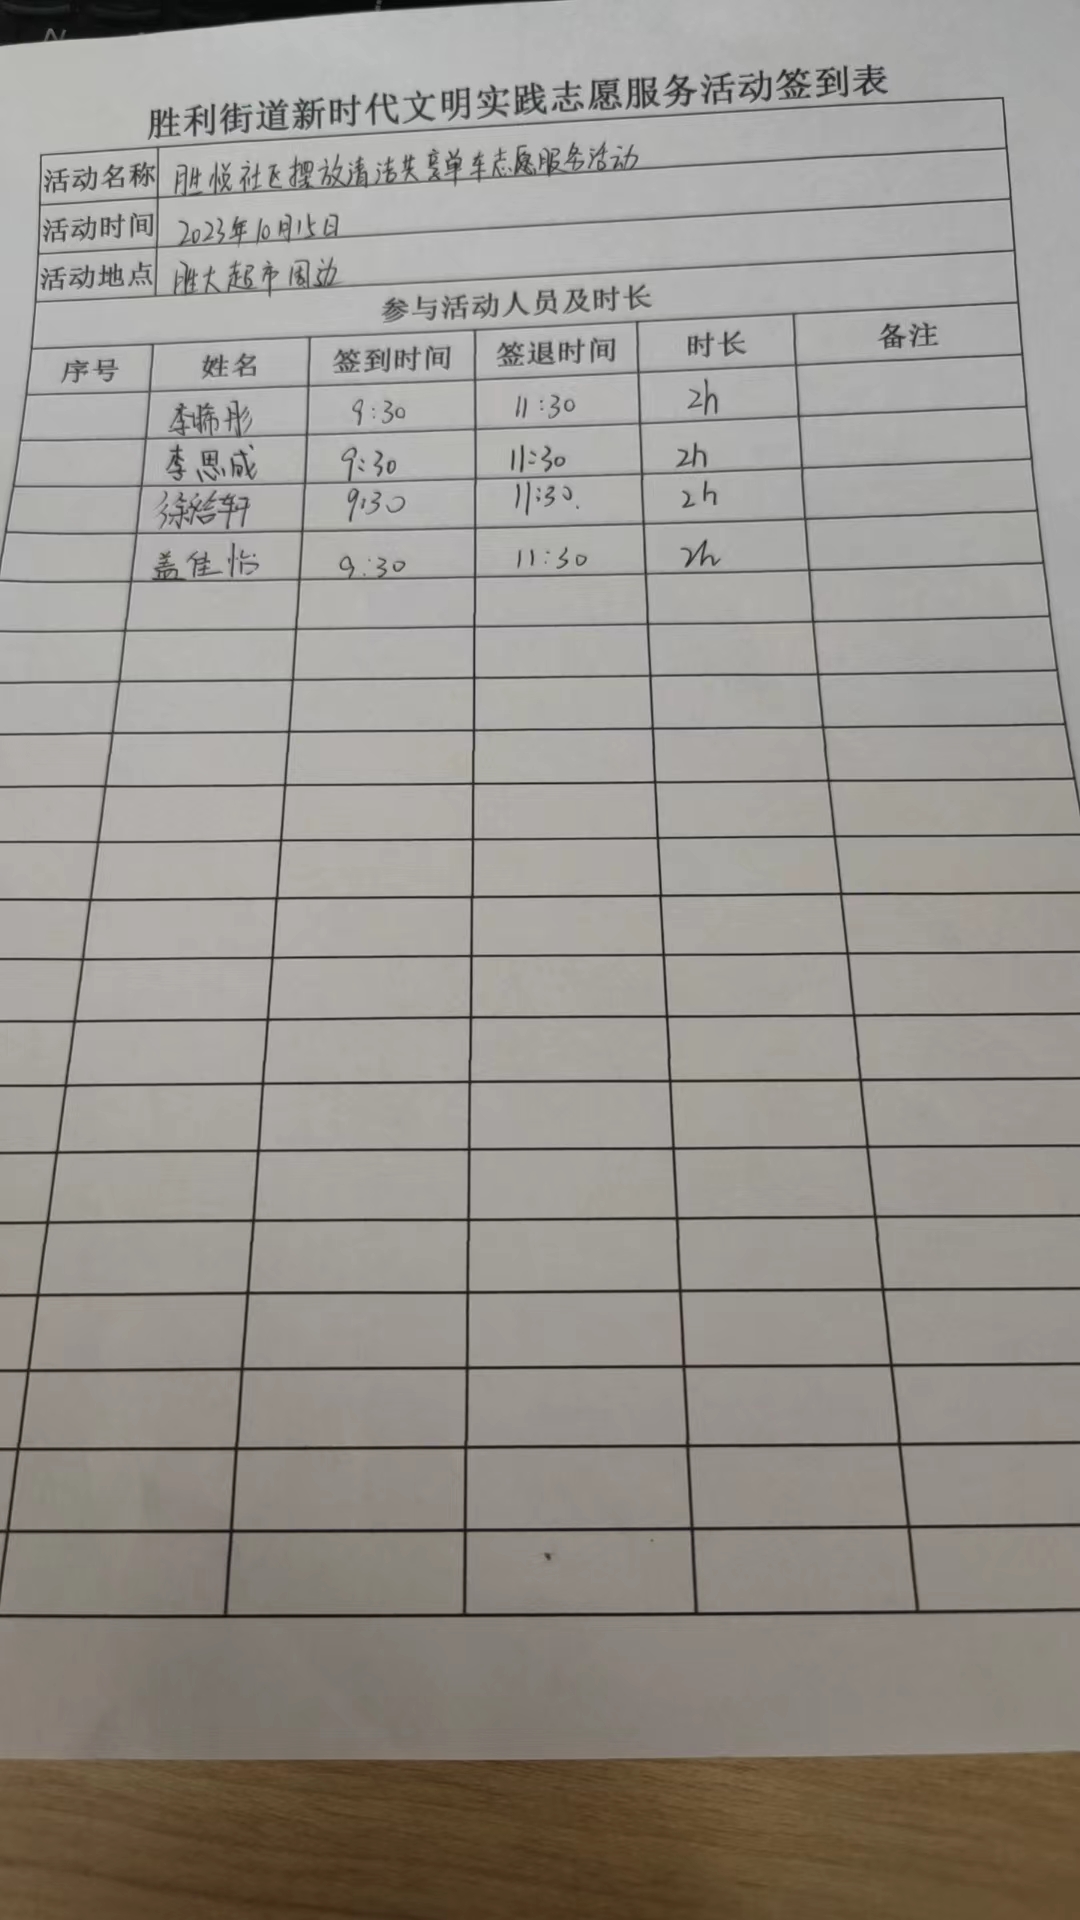 胜利街道新时代文明实践志愿服务活动签到表
活动名称 胜悦社区摆放清洁共享单车志愿服务活动
活动时间 2023年10月15日
活动地点 胜大超市周边
参与活动人员及时长
序号 姓名 签到时间 签退时间 时长 备注
李晞彤 9:30 11:30 2h
李思成 9:30 11:30 2h
徐 轩 9:30 11:30. 2h
盖佳怡 9:30 11:30 2h